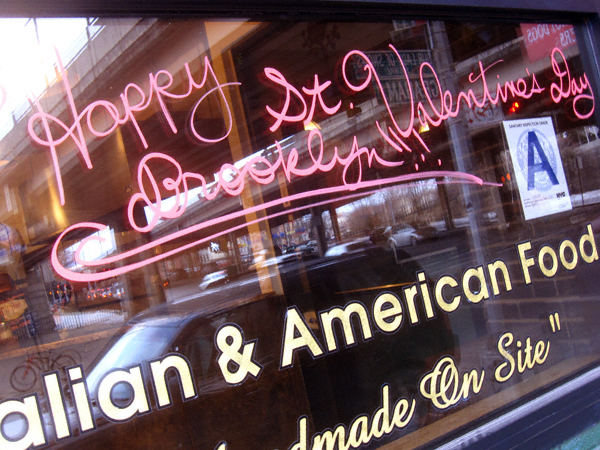 Happy St. Valentine's Day
Brooklyn!!...
SANITARY INSPECTION GRADE
A
NYC
alian & American Food
ndmade On Site"